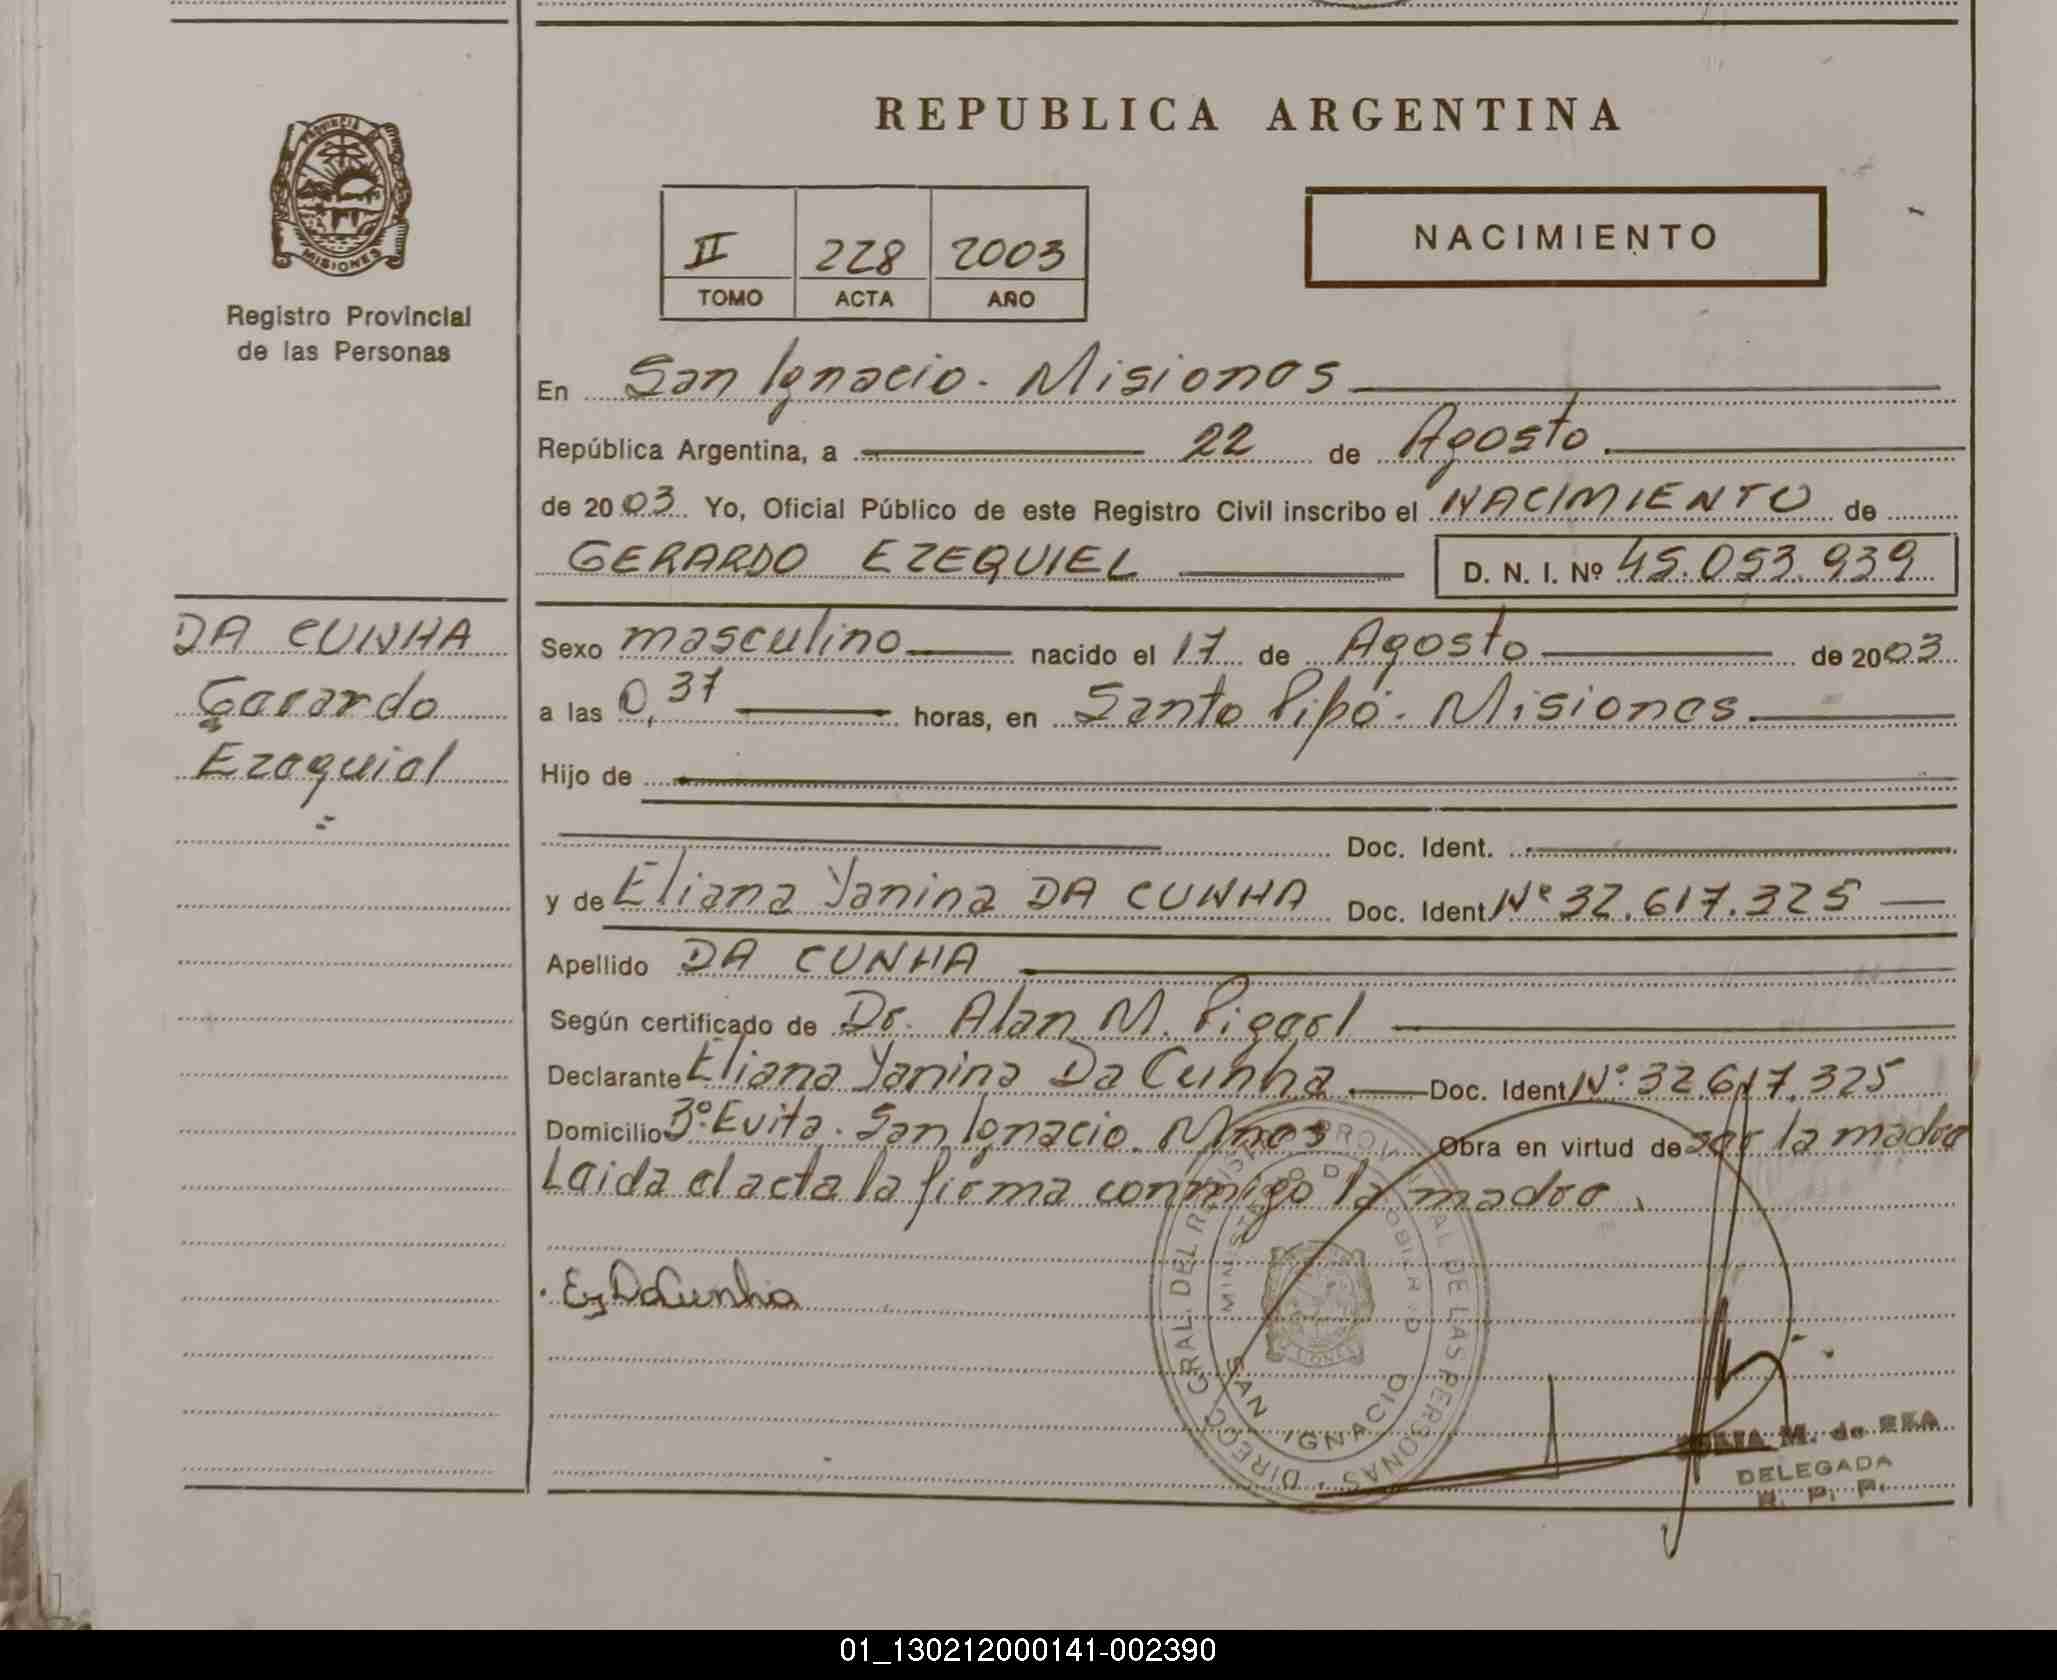 REPUBLICA ARGENTINA
PROVINCIA DE
MISIONES
Registro Provincial
de las Personas
II 228 2003
TOMO ACTA AÑO
NACIMIENTO
En San Ignacio - Misiones
República Argentina, a 22 de Agosto
de 2003. Yo, Oficial Público de este Registro Civil inscribo el NACIMIENTO de
GERARDO EZEQUIEL D. N. I. Nº 45.053.939
DA CUNHA
Gerardo
Ezequiel
Sexo masculino nacido el 17 de Agosto de 2003
a las 0,37 horas, en Santo Pipó - Misiones
Hijo de
Doc. Ident.
y de Eliana Yanina DA CUNHA Doc. Ident. Nº 32.617.325
Apellido DA CUNHA
Según certificado de Dr. Alan M.
Declarante Eliana Yanina Da Cunha. Doc. Ident. Nº 32.617.325
Domicilio Bº Evita. San Ignacio. Mnes Obra en virtud de ser la madre
Leida el acta la firma conmigo la madre.
EyDaCunha
DIRECC. GRAL. DEL REGISTRO PROVINCIAL DE LAS PERSONAS
SAN IGNACIO
M. de
DELEGADA
R. P. P.
01_130212000141-002390